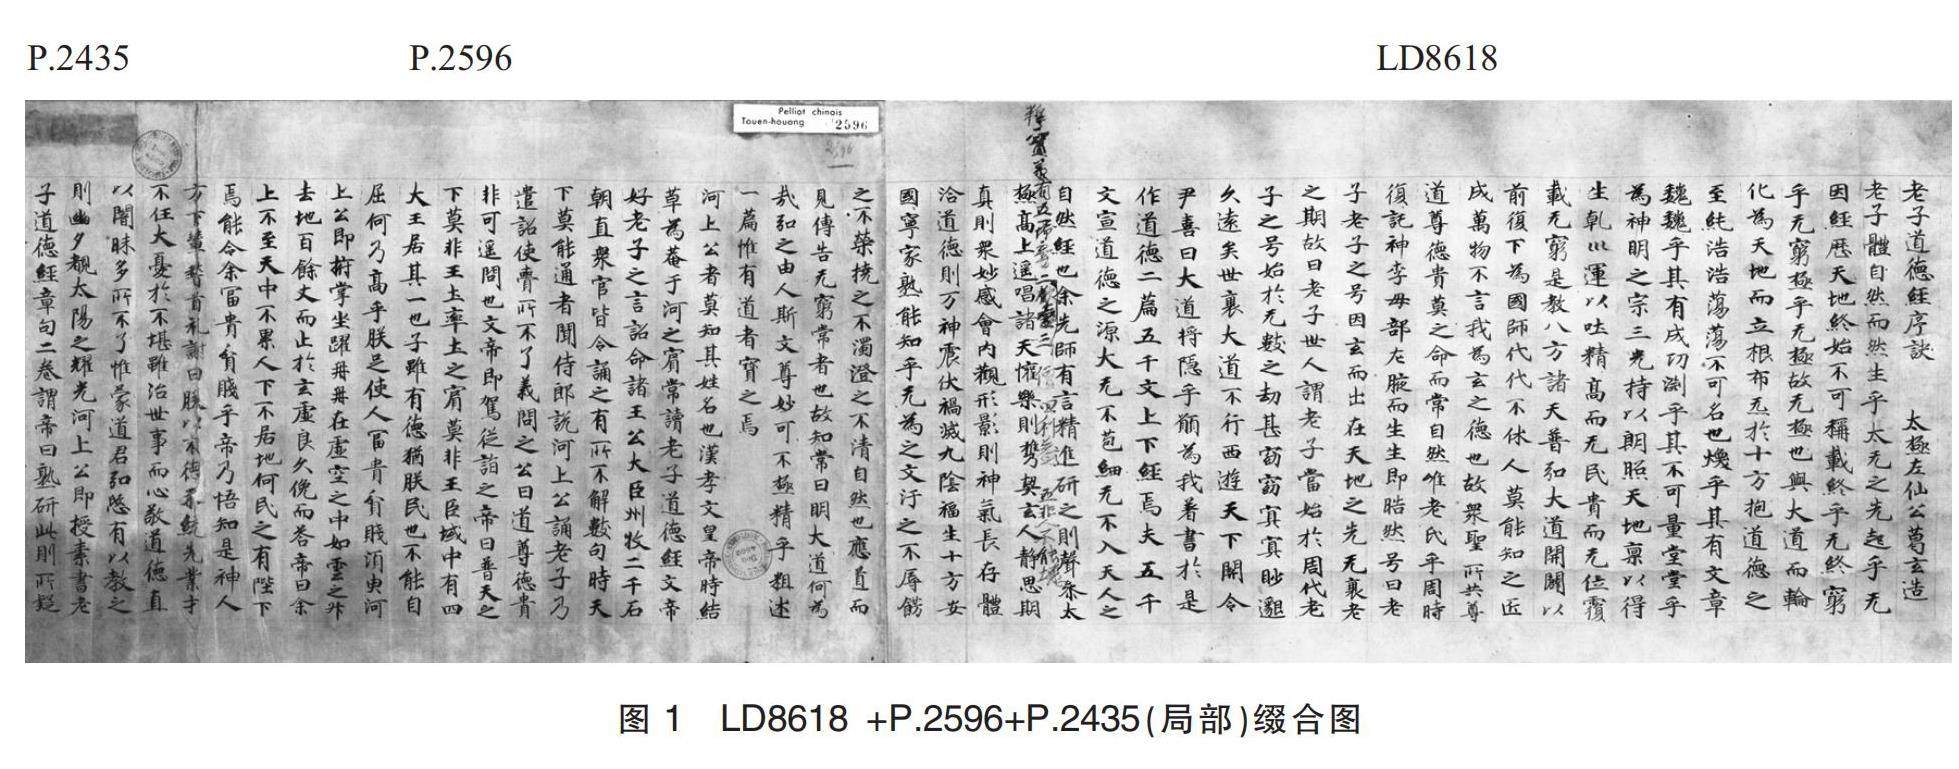 P.2435
P.2596
LD8618
Pelliot chinois
Touen-houang 2596
老子道德經序訣 太極左仙公葛玄造
老子體自然而然生乎太无之先起乎无
因經歷天地終始不可稱載終乎无終窮
乎无窮極乎无極故无極也與大道而輪
化為天地而立根布炁於十方抱道德之
至純浩浩蕩蕩不可名也煥乎其有文章
巍巍乎其有成功淵乎其不可量堂堂乎
為神明之宗三光持以朗照天地稟以得
生乹巛運以吐精高而无民貴而无位覆
載无窮是教八方諸天普弘大道開闢以
前復下為國師代代不休人莫能知之匠
成萬物不言我為玄之德也故衆聖所共尊
道尊德貴莫之命而常自然唯老氏乎周時
復託神李母部左腋而生生即皓然号曰老
子老子之号因玄而出在天地之先无襄老
之期故曰老子世人謂老子當始於周代老
子之号始於无數之劫甚窈窈冥冥眇邈
久遠矣世襄大道不行西遊天下關令
尹喜曰大道将隱乎願為我著書於是
作道德二篇五千文上下經焉夫五千
文宣道德之源大无不苞細无不入天人之
自然經也余先師有言精進研之則聲叅太
極高上遥唱諸天懽樂則携契玄人静思期
真則衆妙感會内觀形影則神氣長存體
洽道德則万神震伏禍滅九陰福生十方安
國寧家孰能知乎无為之文汙之不辱飾
之不榮撓之不濁澄之不清自然也應道而
見傳告无窮常者也故知常曰明大道何為
哉弘之由人斯文尊妙可不極精乎粗述
一篇惟有道者寶之焉
河上公者莫知其姓名也漢孝文皇帝時結
草為菴于河之濱常讀老子道德經文帝
好老子之言詔命諸王公大臣州牧二千石
朝直衆官皆令誦之有所不解數句時天
下莫能通者聞侍郎説河上公誦老子乃
遣詔使賷所不了義問之公曰道尊德貴
非可遥問也文帝即駕従詣之帝曰普天之
下莫非王土率土之賓莫非王臣域中有四
大王居其一也子雖有德猶朕民也不能自
屈何乃高乎朕足使人冨貴貧賤湏臾河
上公即拊掌坐躍冉冉在虚空之中如雲之升
去地百餘丈而止於玄虚良久俛而荅帝曰余
上不至天中不累人下不居地何民之有陛下
焉能令余冨貴貧賤乎帝乃悟知是神人
方下輦稽首礼謝曰朕以不德忝統先業才
不任大憂於不堪雖治世事而心敬道德直
以闇昧多所不了惟蒙道君弘愍有以教之
則幽夕覩太陽之耀光河上公即授素書老
子道德經章句二卷謂帝曰熟研此則所疑
图 1 LD8618 +P.2596+P.2435(局部)缀合图